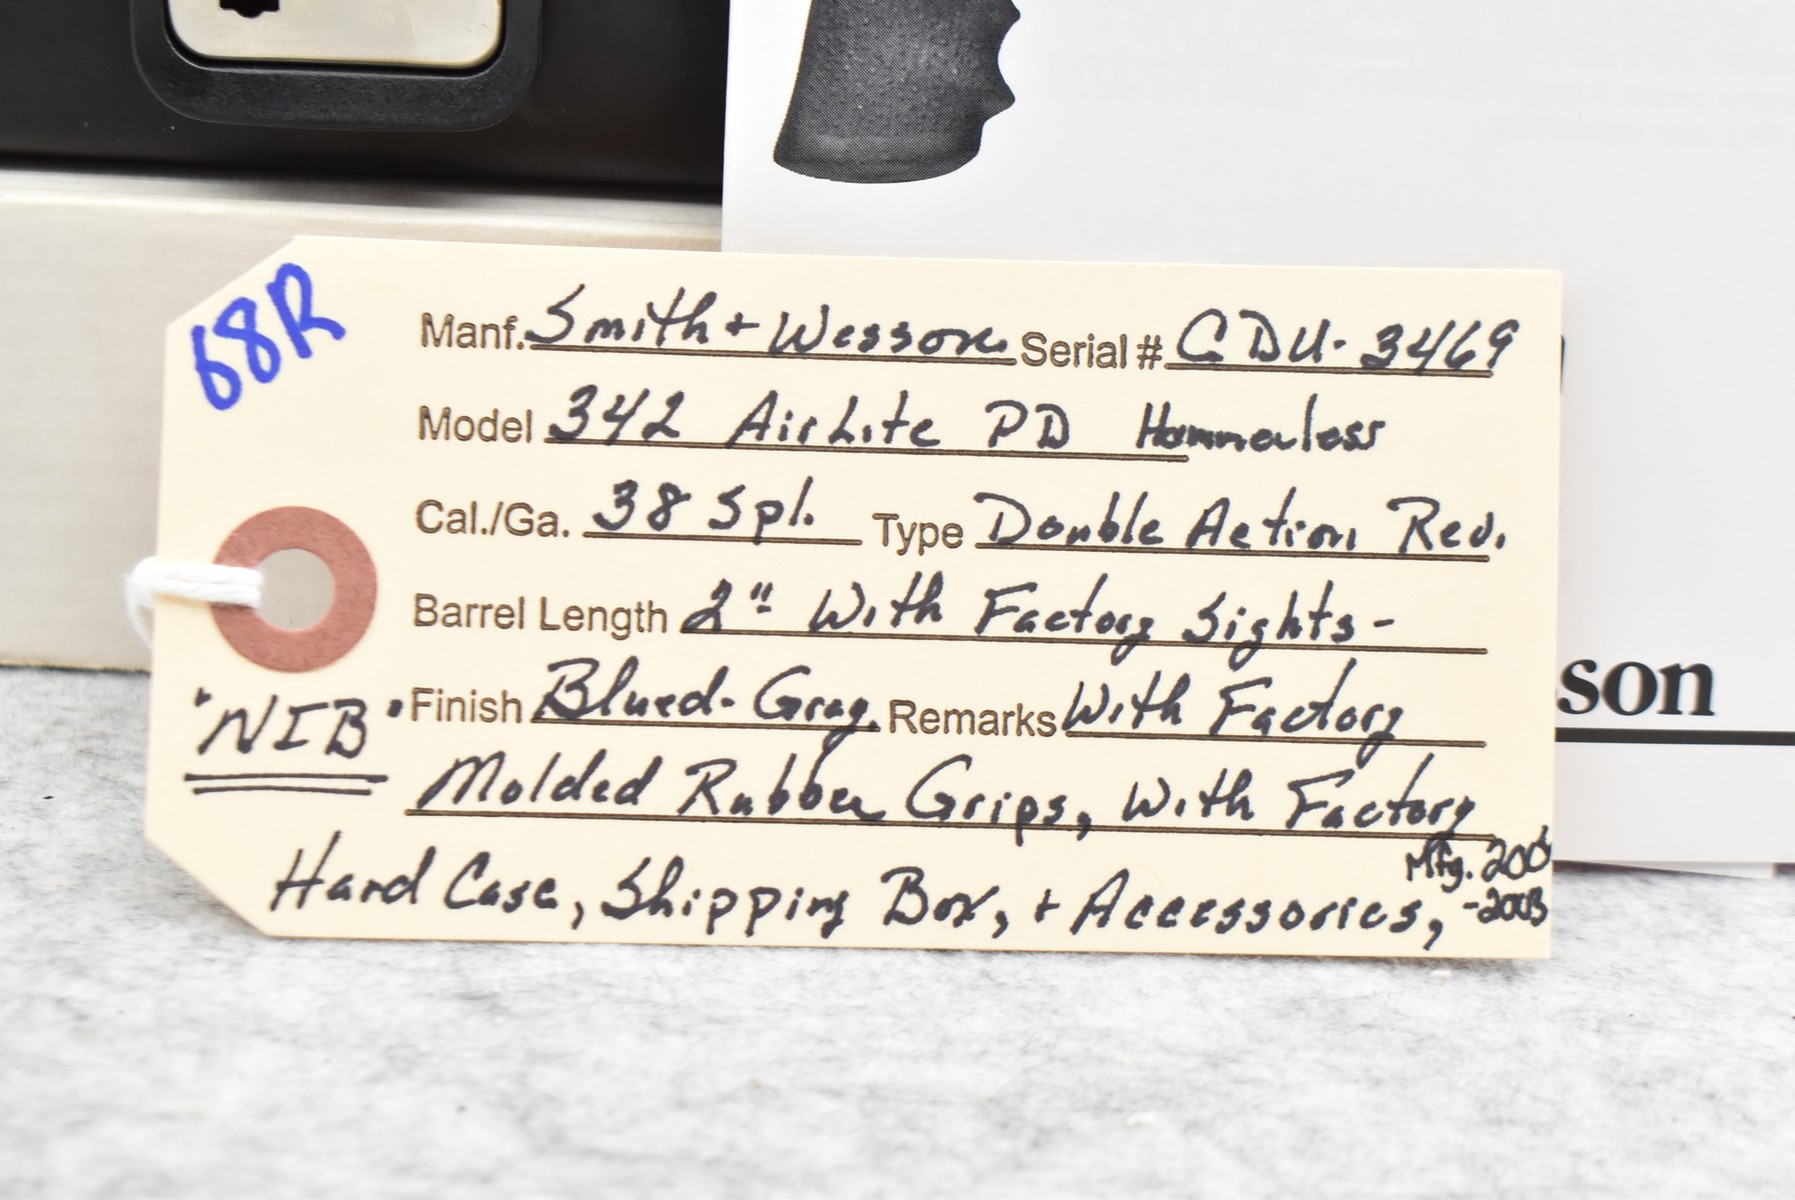 68R
Manf. Smith + Wesson Serial # CDU-3469
Model 342 AirLite PD Hammerless
Cal./Ga. 38 Spl. Type Double Action Rev.
Barrel Length 2" With Factory Sights-
"NIB" Finish Blued-Gray. Remarks With Factory
Molded Rubber Grips, With Factory
Hard Case, Shipping Box, + Accessories,
Mfg.
-2003
son